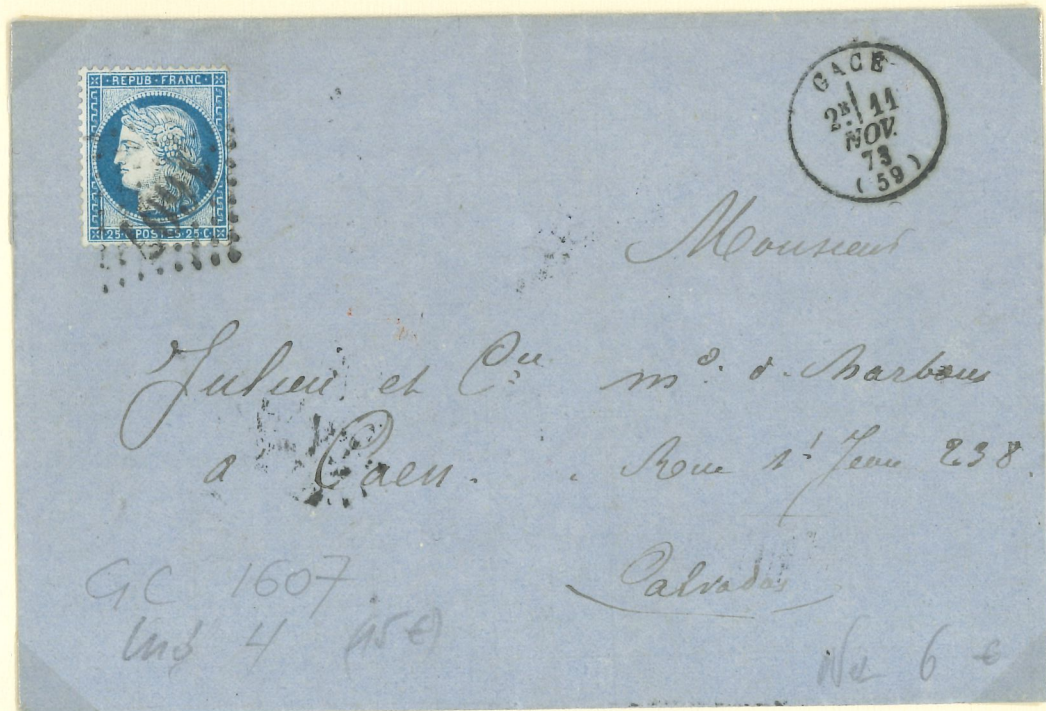 REPUB·FRANC·
25·C POSTES·25·C
GACE
2E 11
NOV.
73
(59)
Monsieur
Julien et Cie md. d. Marbres
a Caen. Rue St Jean 238.
Calvados
GC 1607
Ind 4 (15€)
Net 6 €